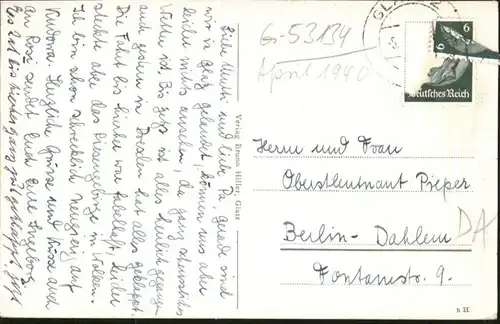 Liebe Mutti und lieber Pa gerade sind
wir in Glatz gelandet, können uns aber
leider nichts ansehen, da ganz scheussliches
Wetter ist. Bis jetzt ist alles herrlich gegangen
auch gestern in Dresden hat alles geklappt.
Die Fahrt bis hierher war fabelhaft, leider
steckte aber das Riesengebirge in Wolken.
Ich bin schon schrecklich neugierig auf
Kudowa. Herzliche Grüsse und Küsse auch
an Rosi sendet Euch Eure Ingeborg
Es hat bis hierher ganz gut geklappt.
Verlag Bruno Hiller, Glatz
Gr-53134
April 1940
GLATZ
6
6
Deutsches Reich
Herrn und Frau
Oberstleutnant Pieper
Berlin-Dahlem
DA
Fontanestr. 9.
B H